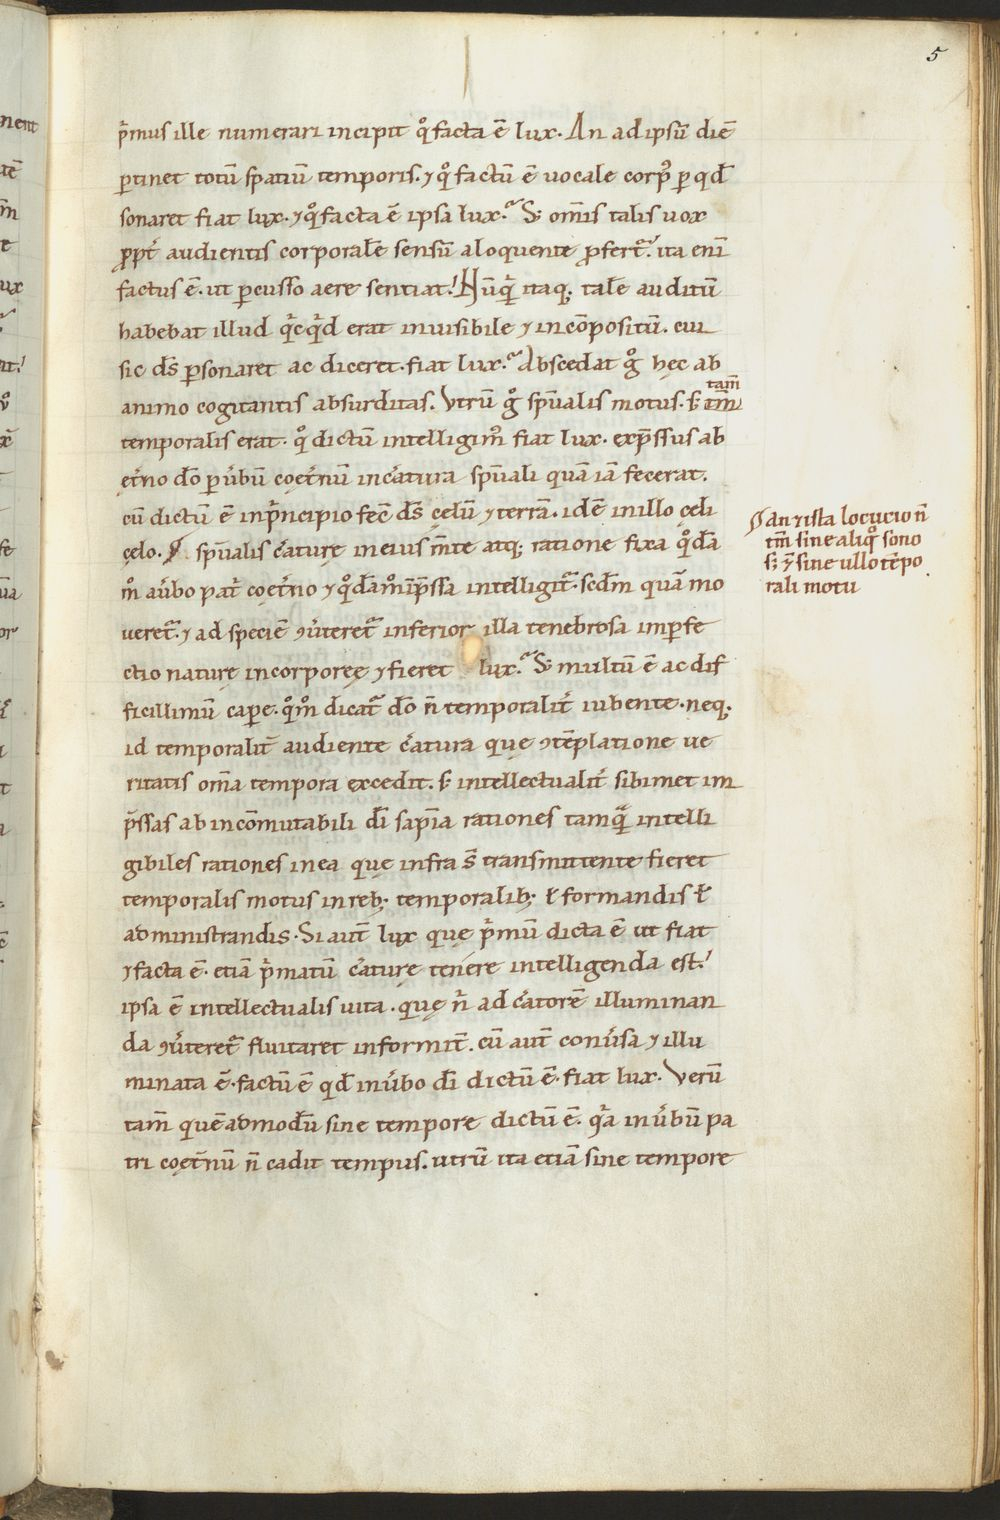 5
p̄mus ille numerari incipit qͦ facta ē lux. An ad ipsū diē
ꝑtinet totū spatiū temporis. ⁊ qͦ factū ē uocale corpꝰ ꝑ qđ
sonaret fiat lux. ⁊ qͦ facta ē ipsa lux? S; om̄is talis uox
ꝓpt̄ audientis corporalē sensū a loquente ꝓfert̃. ita enī
factus ē. ut ꝑcusso aere sentiat! Nūq̇ itaq; talē auditū
habebat illud q̇cq̇d erat inuisibile ⁊ incōpositū. cui
sic ds̄ ꝑsonaret ac diceret. fiat lux? Abscedat gͦ hęc ab
animo cogitantis absurditas. Vtrū gͦ sp̄ualis motus. s; tm̄
tam̄
temporalis erat. qͦ dictū intelligimꝰ fiat lux. exp̄ssus ab
ęt̄no dō ꝑ uƀū coęt̄nū in c̄atura sp̄uali quā iā fecerat.
cū dictū ē in ṗncipio fec̄ ds̄ cęlū ⁊ terrā. id ē in illo cęli
cęlo. sp̄ualis c̄aturę in eius m̄te atq; ratione fixa qͦdā
mͦ a uƀo pat̄ coęt̄no ⁊ qͦdāmͦ inp̄ssa intelligit̃. scđm quā mo
ueret̃. ⁊ ad speciē ꝯu̓teret̃ inferior illa tenebrosa imꝑfe
ctio naturę incorporeę ⁊ fieret lux? S; multū ē ac dif
ficillimū caꝑe. qͦmͦ dicat̃ dō n̄ temporalit̄ iubente. neq;
id temporalit̄ audiente c̄atura que ꝯtēplatione ue
ritatis om̄a tempora excedit. s; intellectualit̄ sibimet im
p̄ssas ab incōmutabili dī sap̄ia rationes tamq̃ intelli
gibiles rationes in ea que infra s̄ transmittente fieret
temporalis motus in reb; temporalib; ł formandis ł
administrandis. Si aut̄ lux que ṗmū dicta ē ut fiat
⁊ facta ē. etiā ṗmatū c̄aturę tenere intelligenda est!
ipsa ē intellectualis uita. quę n̄ ad c̄atorē illuminan
da ꝯu̓teret̃ fluitaret informit̄. cū aut̄ conu̓sa ⁊ illu
minata ē. factū ē qđ in uƀo dī dictū ē. fiat lux. Verū
tam̄ quēadmodū sine tempore dictū ē. q̇a in uƀū pa
tri coęt̄nū n̄ cadit tempus. utrū ita etiā sine tempore
an ⁊ ista locucio n̄
tm̄ sine aliqͦ sono
s; ⁊ sine ullo tēpo
rali motu